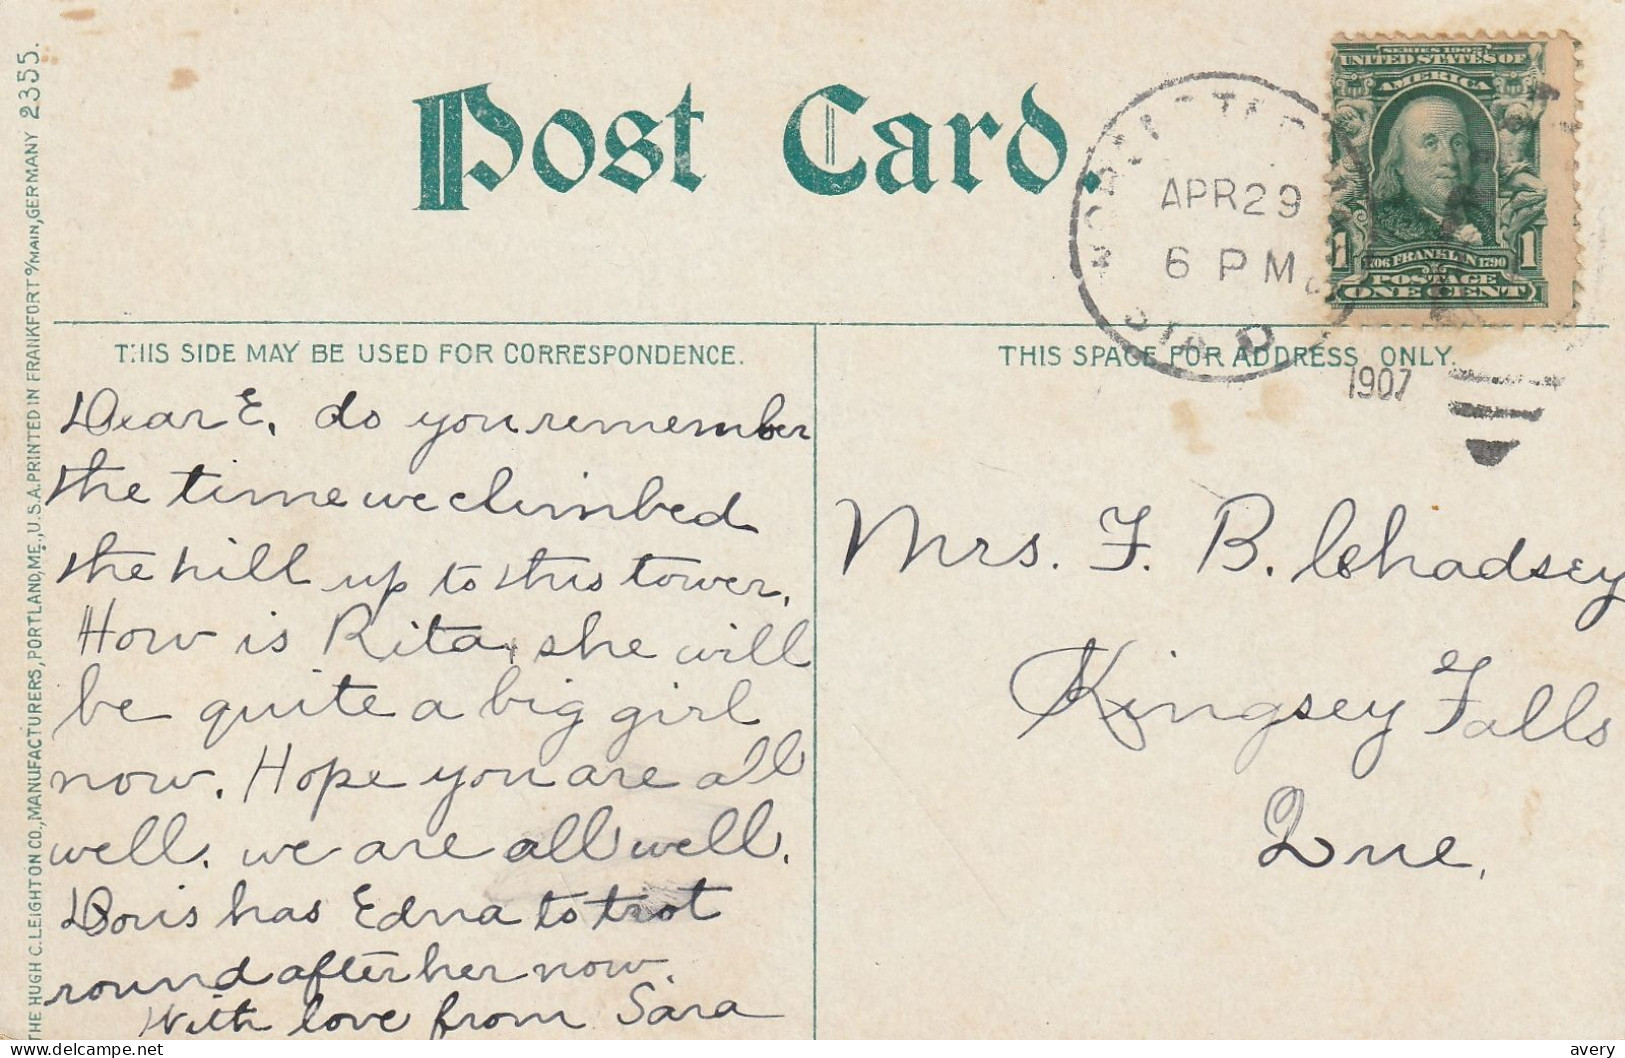 Post Card.
SERIES 1902
UNITED STATES OF
AMERICA
1706 FRANKLIN 1790
1 1
POSTAGE
ONE CENT
APR 29
6 PM
STA. D
1907
THIS SIDE MAY BE USED FOR CORRESPONDENCE.
THIS SPACE FOR ADDRESS ONLY.
Dear E, do you remember
the time we climbed
the hill up to this tower.
How is Rita, she will
be quite a big girl
now. Hope you are all
well. we are all well.
Doris has Edna to trot
round after her now.
With love from Sara
Mrs. F. B. Chadsey
Kingsey Falls
Que.
THE HUGH C. LEIGHTON CO., MANUFACTURERS, PORTLAND, ME., U.S.A. PRINTED IN FRANKFORT o/MAIN, GERMANY 2355.
delcampe.net
avery